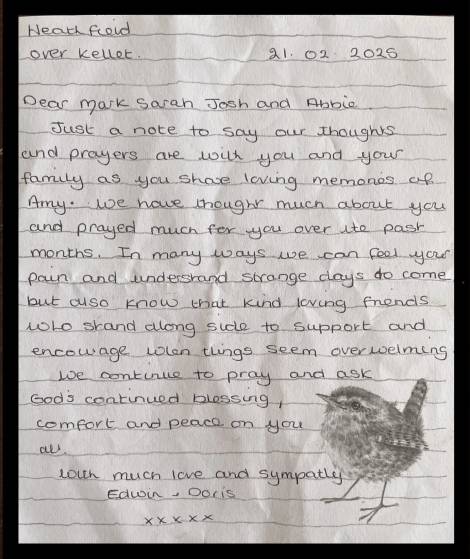 Heathfield
over Kellet.          21. 02. 2025
Dear Mark Sarah Josh and Abbie
Just a note to say our thoughts
and prayers are with you and your
family as you share loving memories of
Amy. We have thought much about you
and prayed much for you over the past
months. In many ways we can feel your
pain and understand strange days to come
but also know that kind loving friends
who stand along side to support and
encourage when things seem overwelming
We continue to pray and ask
God's continued blessing,
comfort and peace on you
all.
With much love and sympathy
Edwin & Doris
x x x x x